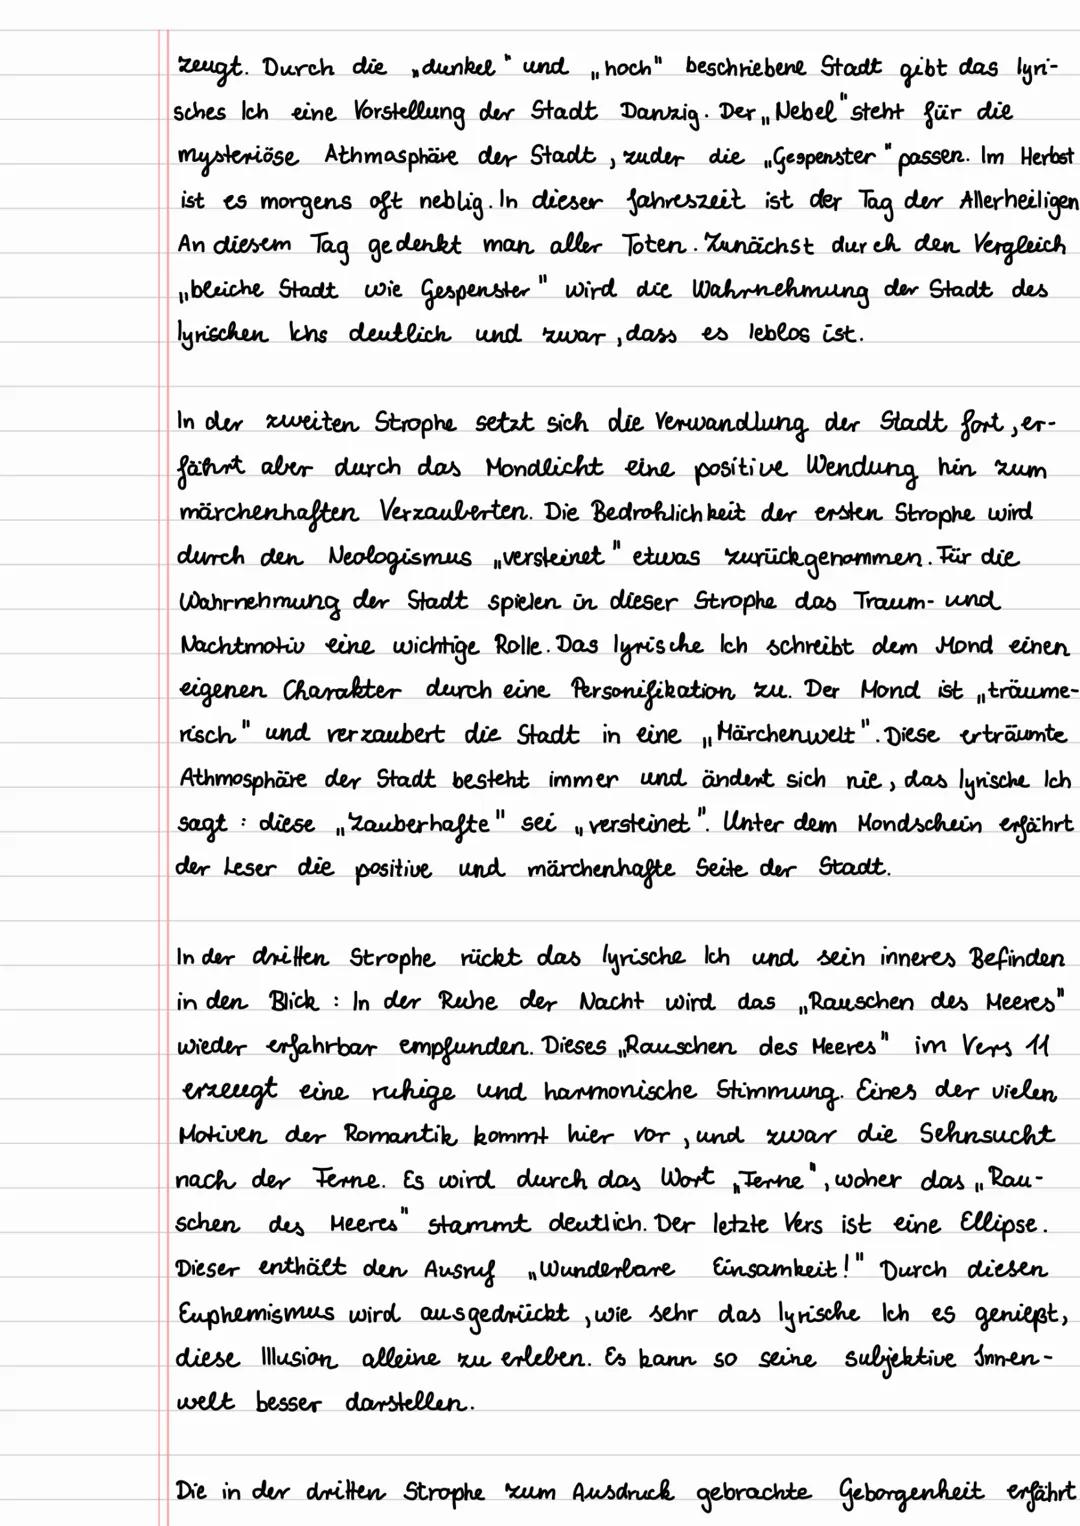 zeugt. Durch die „dunkel" und „hoch" beschriebene Stadt gibt das lyri-
sches Ich eine Vorstellung der Stadt Danzig. Der „Nebel" steht für die
mysteriöse Athmasphäre der Stadt, zuder die „Gespenster" passen. Im Herbst
ist es morgens oft neblig. In dieser Jahreszeit ist der Tag der Allerheiligen
An diesem Tag gedenkt man aller Toten. Zunächst durch den Vergleich
„bleiche Stadt wie Gespenster" wird die Wahrnehmung der Stadt des
lyrischen Ichs deutlich und zwar, dass es leblos ist.
In der zweiten Strophe setzt sich die Verwandlung der Stadt fort, er-
fährt aber durch das Mondlicht eine positive Wendung hin zum
märchenhaften Verzauberten. Die Bedrohlichkeit der ersten Strophe wird
durch den Neologismus „versteinet" etwas zurückgenommen. Für die
Wahrnehmung der Stadt spielen in dieser Strophe das Traum- und
Nachtmotiv eine wichtige Rolle. Das lyrische Ich schreibt dem Mond einen
eigenen Charakter durch eine Personifikation zu. Der Mond ist „träume-
risch" und verzaubert die Stadt in eine „Märchenwelt". Diese erträumte
Athmosphäre der Stadt besteht immer und ändert sich nie, das lyrische Ich
sagt: diese „Zauberhafte" sei „versteinet". Unter dem Mondschein erfährt
der Leser die positive und märchenhafte Seite der Stadt.
In der dritten Strophe rückt das lyrische Ich und sein inneres Befinden
in den Blick: In der Ruhe der Nacht wird das „Rauschen des Meeres"
wieder erfahrbar empfunden. Dieses „Rauschen des Meeres" im Vers 11
erzeugt eine ruhige und harmonische Stimmung. Eines der vielen
Motiven der Romantik kommt hier vor, und zwar die Sehnsucht
nach der Ferne. Es wird durch das Wort „Ferne", woher das „Rau-
schen des Meeres" stammt deutlich. Der letzte Vers ist eine Ellipse.
Dieser enthält den Ausruf „Wunderbare Einsamkeit!" Durch diesen
Euphemismus wird ausgedrückt, wie sehr das lyrische Ich es genießt,
diese Illusion alleine zu erleben. Es kann so seine subjektive Innen-
welt besser darstellen.
Die in der dritten Strophe zum Ausdruck gebrachte Geborgenheit erfährt